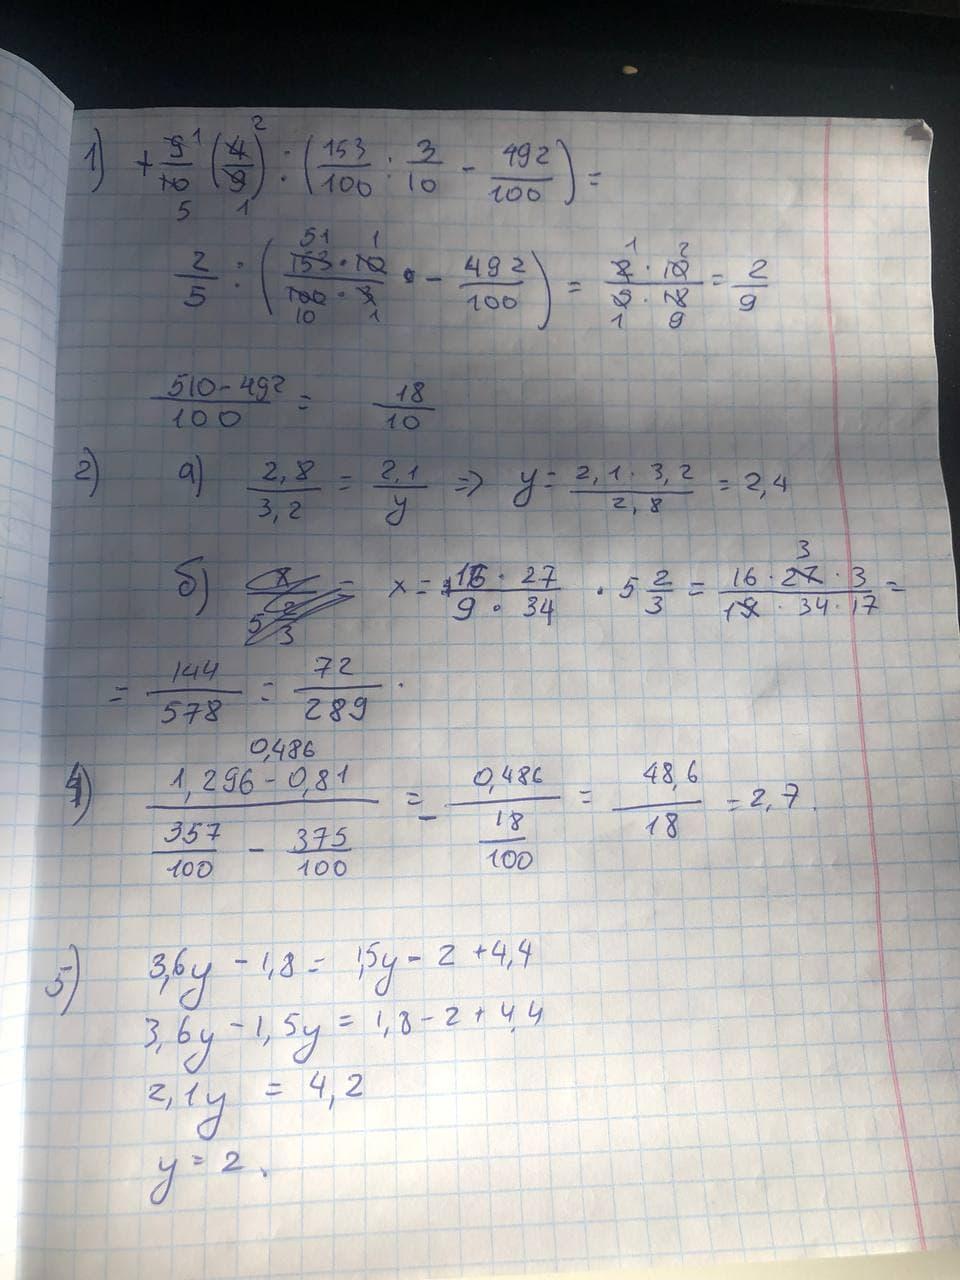 1) + 9/10 (4/9) : (153/100 : 3/10 - 492/100) =
2/5 : (153 · 10 / 100 · 3 - 492/100) = 2 · 10 / 5 · 18 = 2/9
510 - 492 / 100 = 18/10
2) а) 2,8/3,2 = 2,1/y => y = 2,1 · 3,2 / 2,8 = 2,4
б) x = 16 · 27 / 9 · 34 · 5 2/3 = 16 · 27 · 3 / 19 · 34 · 17 =
= 144/578 = 72/289 .
0,486
4) 1,296 - 0,81 / 357/100 - 375/100 = - 0,486 / 18/100 = 48,6/18 = 2,7 .
5) 3,6y - 1,8 = 1,5y - 2 + 4,4
3,6y - 1,5y = 1,8 - 2 + 4,4
2,1y = 4,2
y = 2 .